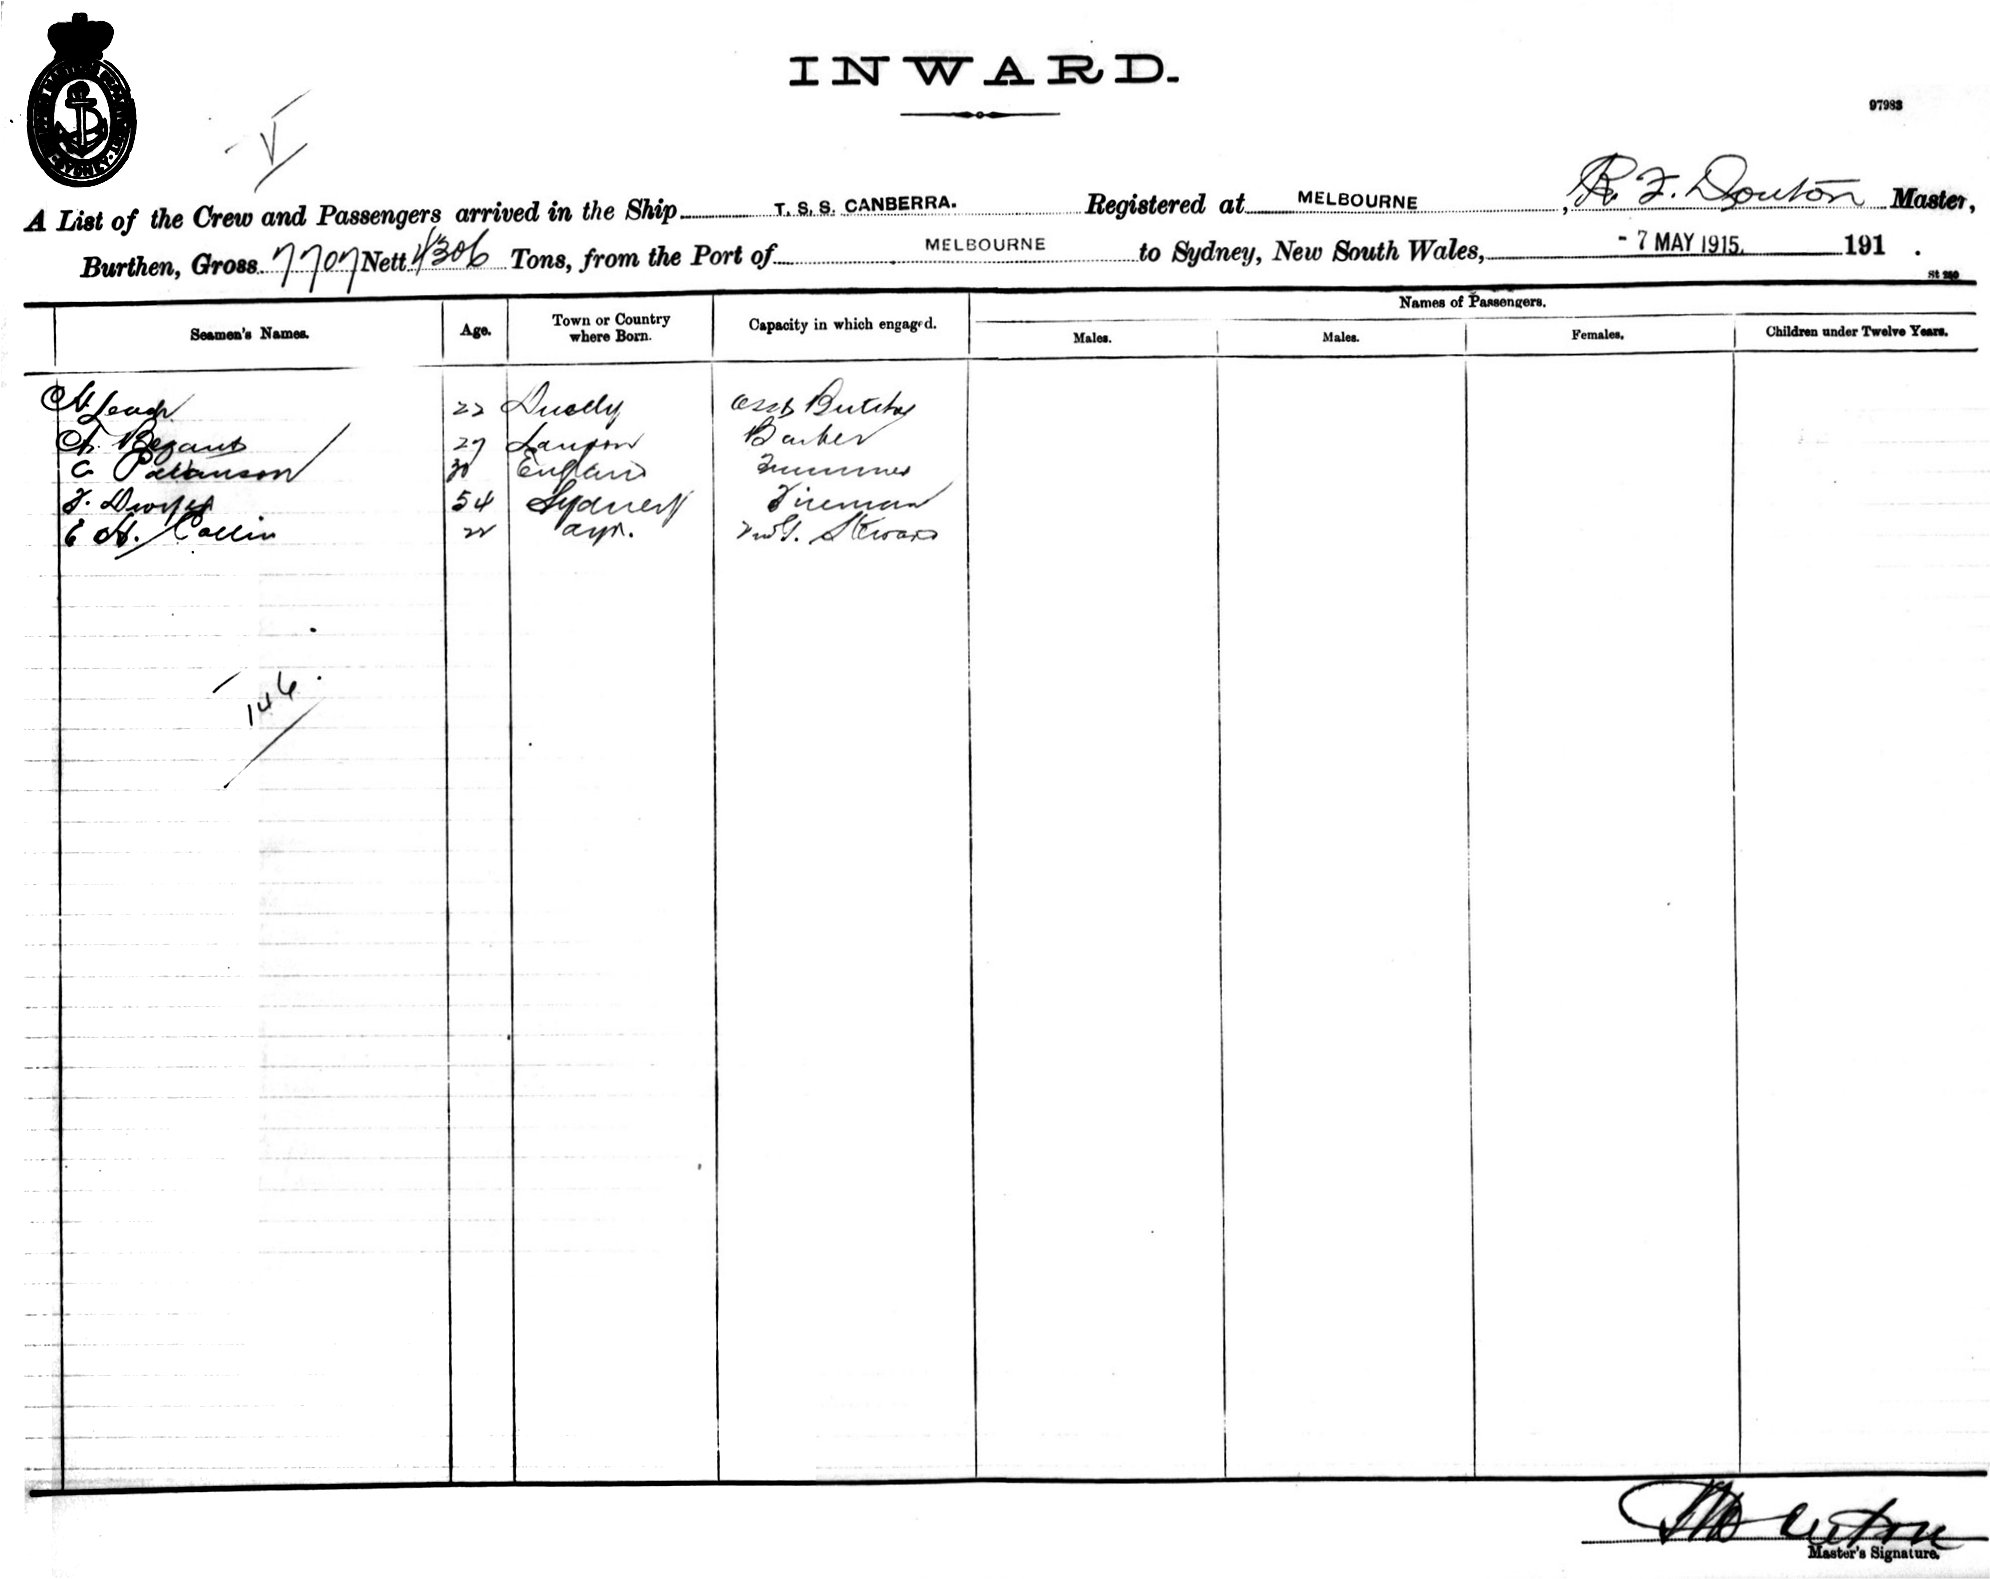 INWARD.
97983
V
A List of the Crew and Passengers arrived in the Ship T. S. S. CANBERRA. Registered at MELBOURNE, R. F. Douton Master,
Burthen, Gross 7707 Nett 4306 Tons, from the Port of MELBOURNE to Sydney, New South Wales, - 7 MAY 1915. 191 .
St 280
Names of Passengers.
Seamen's Names. Age. Town or Country where Born. Capacity in which engaged. Males. Males. Females. Children under Twelve Years.
22 Butcher
A. Bezant 27 Barber
C Pattanson 30 England Trimmer
F. Dwyer 54 Sydney Fireman
E H. Collin 22 Ayr. Steward
146.
Master's Signature.